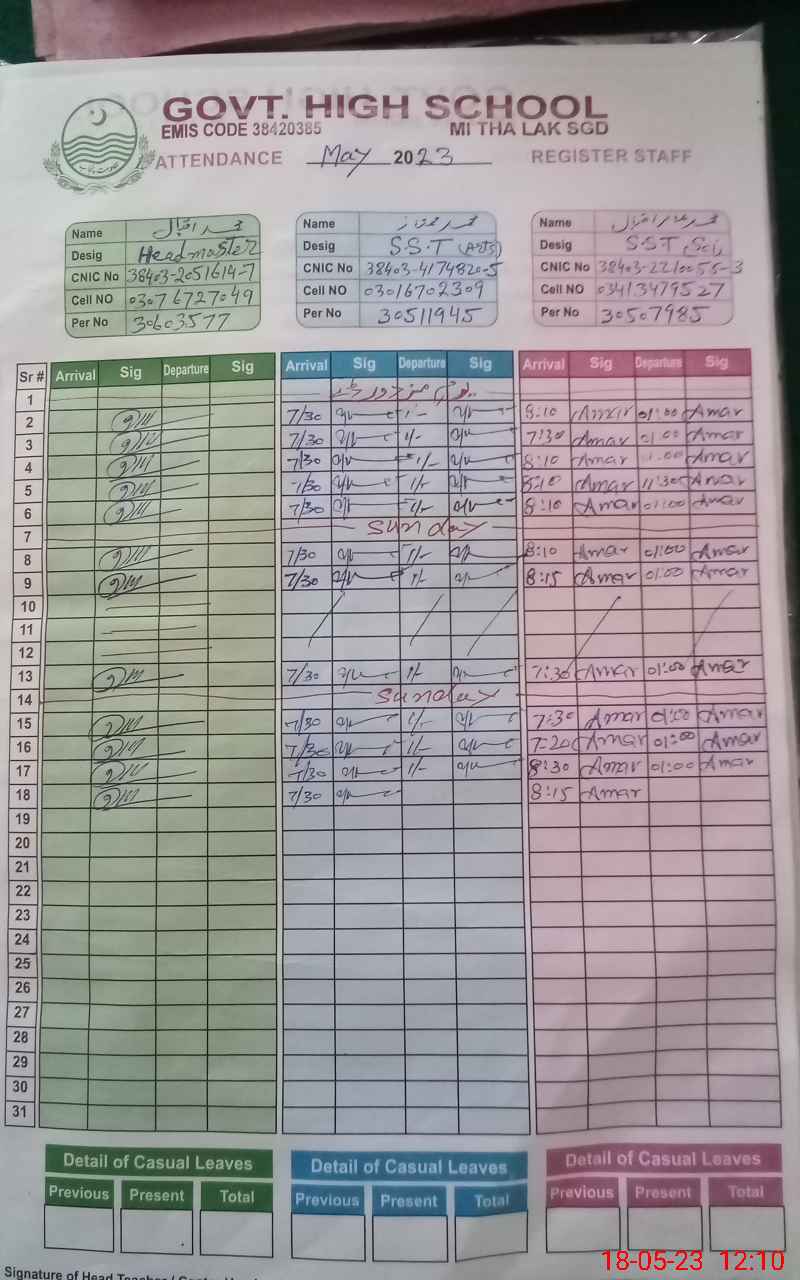 GOVT. HIGH SCHOOL
EMIS CODE 38420385 MI THA LAK SGD
ATTENDANCE May 2023 REGISTER STAFF
Name محمد اقبال
Desig Headmaster
CNIC No 38403-2051614-7
Cell NO 03076727049
Per No 30603577
Name محمد ممتاز
Desig S.S.T (Arts)
CNIC No 38403-4174820-5
Cell NO 03016702309
Per No 30511945
Name
Desig S.S.T (Sci)
CNIC No 38403-2210055-3
Cell NO 03413479527
Per No 30507985
Sr # Arrival Sig Departure Sig Arrival Sig Departure Sig Arrival Sig Departure Sig
1 یوم مزدور
2 7/30 1/- 8:10 Amar 01:00 Amar
3 7/30 1/- 7:30 Amar 01:00 Amar
4 7/30 1/- 8:10 Amar 1:00 Amar
5 7/30 1/- 8:10 Amar 11:30 Amar
6 7/30 1/- 8:10 Amar 01:00 Amar
7 Sunday
8 7/30 1/- 8:10 Amar 01:00 Amar
9 7/30 1/- 8:15 Amar 01:00 Amar
10
11
12
13 7/30 1/- 7:30 Amar 01:00 Amar
14 Sunday
15 7/30 1/- 7:30 Amar 01:00 Amar
16 7/30 1/- 7:20 Amar 01:00 Amar
17 7/30 1/- 8:30 Amar 01:00 Amar
18 7/30 8:15 Amar
19
20
21
22
23
24
25
26
27
28
29
30
31
Detail of Casual Leaves Detail of Casual Leaves Detail of Casual Leaves
Previous Present Total Previous Present Total Previous Present Total
Signature of Head
18-05-23 12:10